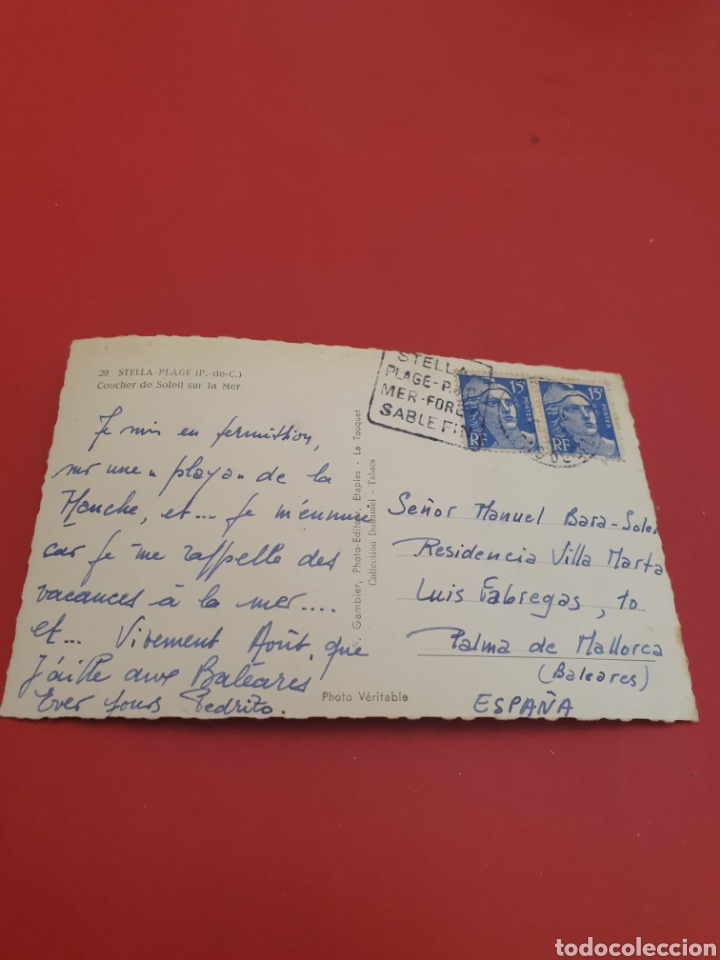 29 STELLA-PLAGE (P.-de-C.)
Coucher de Soleil sur la Mer
Je suis en permission,
sur une "playa" de la
Manche, et... je m'ennuie
car je me rappelle des
vacances à la mer....
et... Vivement Août, que
j'aille aux Baléares
Ever yours Pedrito.
Gambier, Photo-Editeur, Etaples - Le Touquet
Collection Duhamel - Tabacs
Photo Véritable
STELLA
PLAGE-P.
MER-FORE
SABLE FI
15F
POSTES
RF
15F
POSTES
RF
Señor Manuel Bara-Soler
Residencia Villa Marta
Luis Fabregas, 10
Palma de Mallorca
(Baleares)
ESPAÑA
todocoleccion